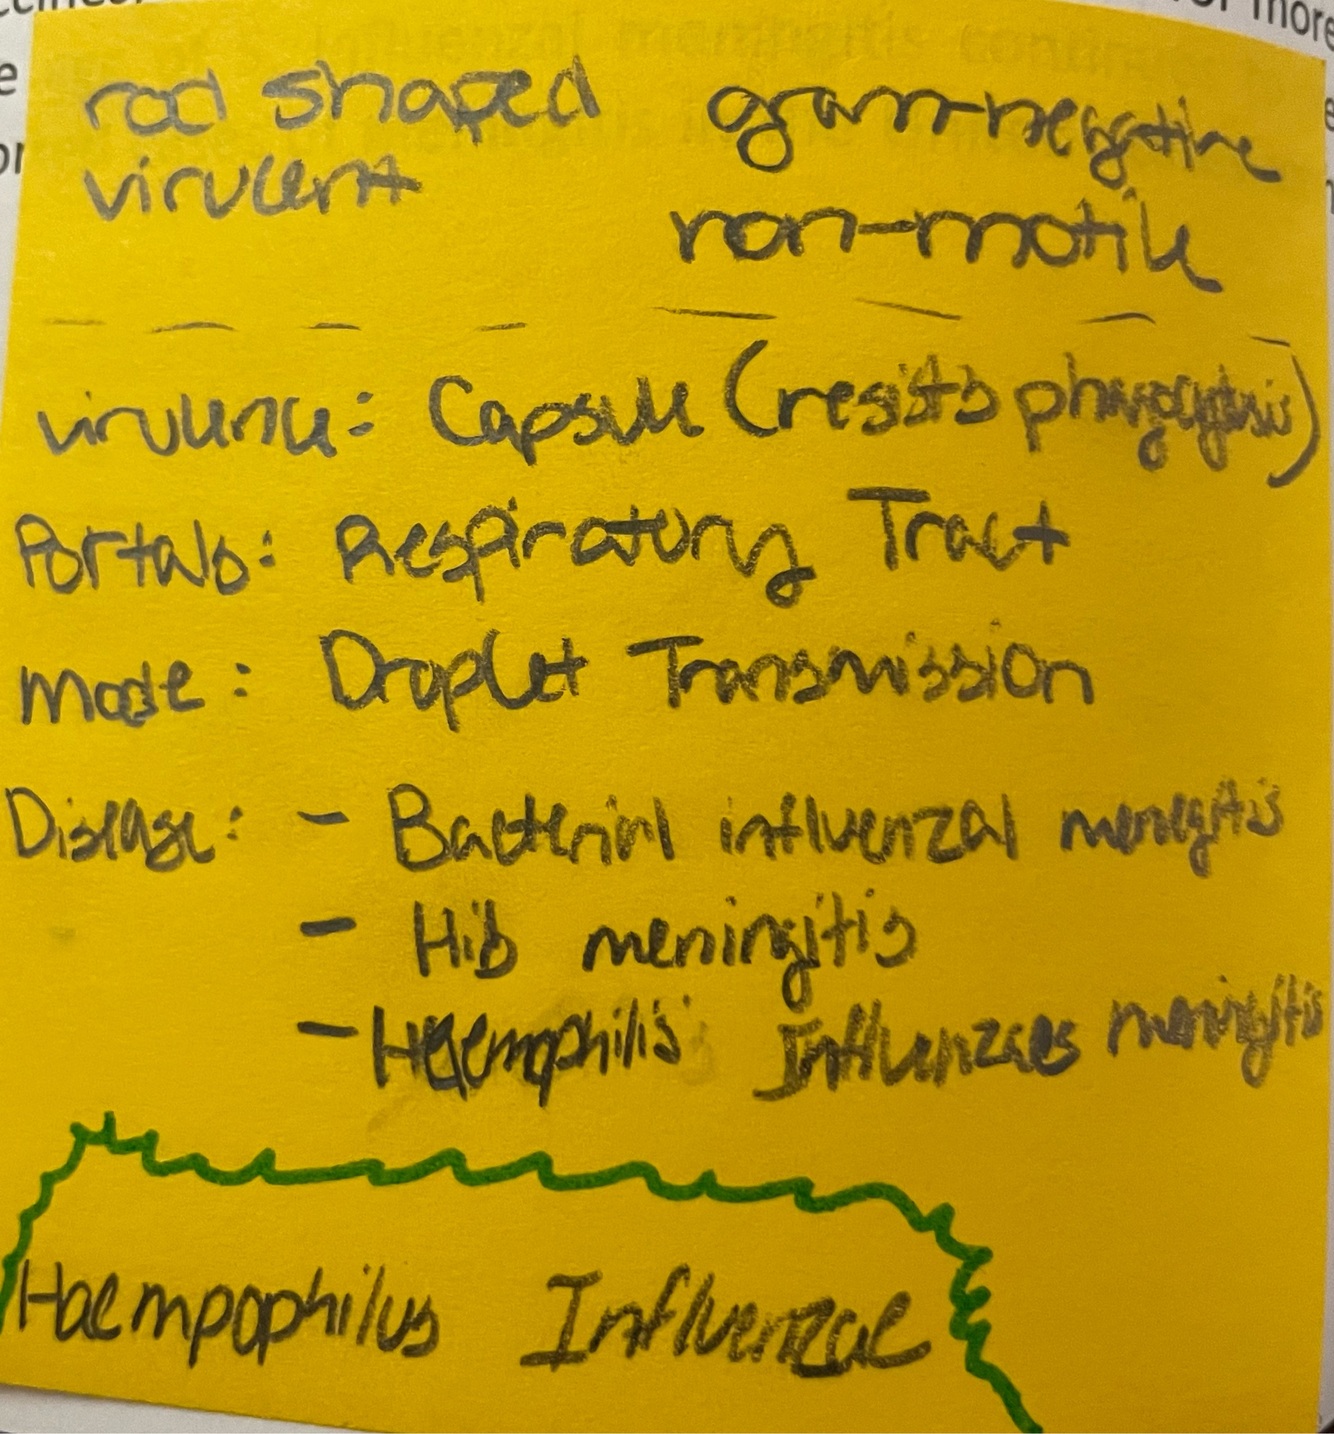 rod shaped gram-negative
virulent non-motile
virulence: Capsule (resists phagocytosis)
Portals: Respiratory Tract
mode: Droplet Transmission
Disease: - Bacterial influenzal menegitis
- Hib meningitis
- Haemophilis Influenzaes meningitis
Haempophilus Influenzae